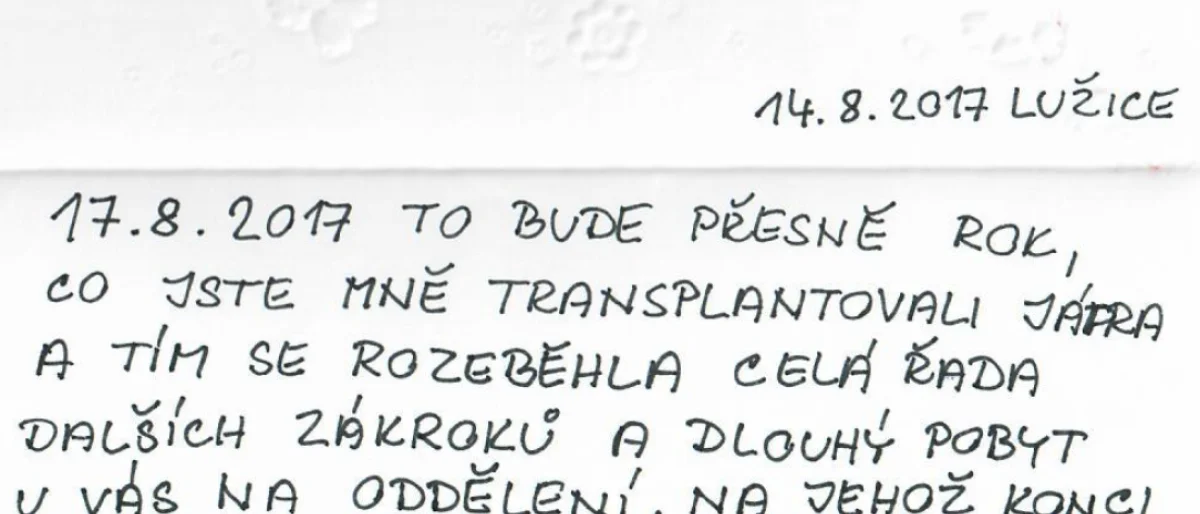 14. 8. 2017 LUŽICE
17. 8. 2017 TO BUDE PŘESNĚ ROK,
CO JSTE MNĚ TRANSPLANTOVALI JÁTRA
A TÍM SE ROZEBĚHLA CELÁ ŘADA
DALŠÍCH ZÁKROKŮ A DLOUHÝ POBYT
U VÁS NA ODDĚLENÍ, NA JEHOŽ KONCI